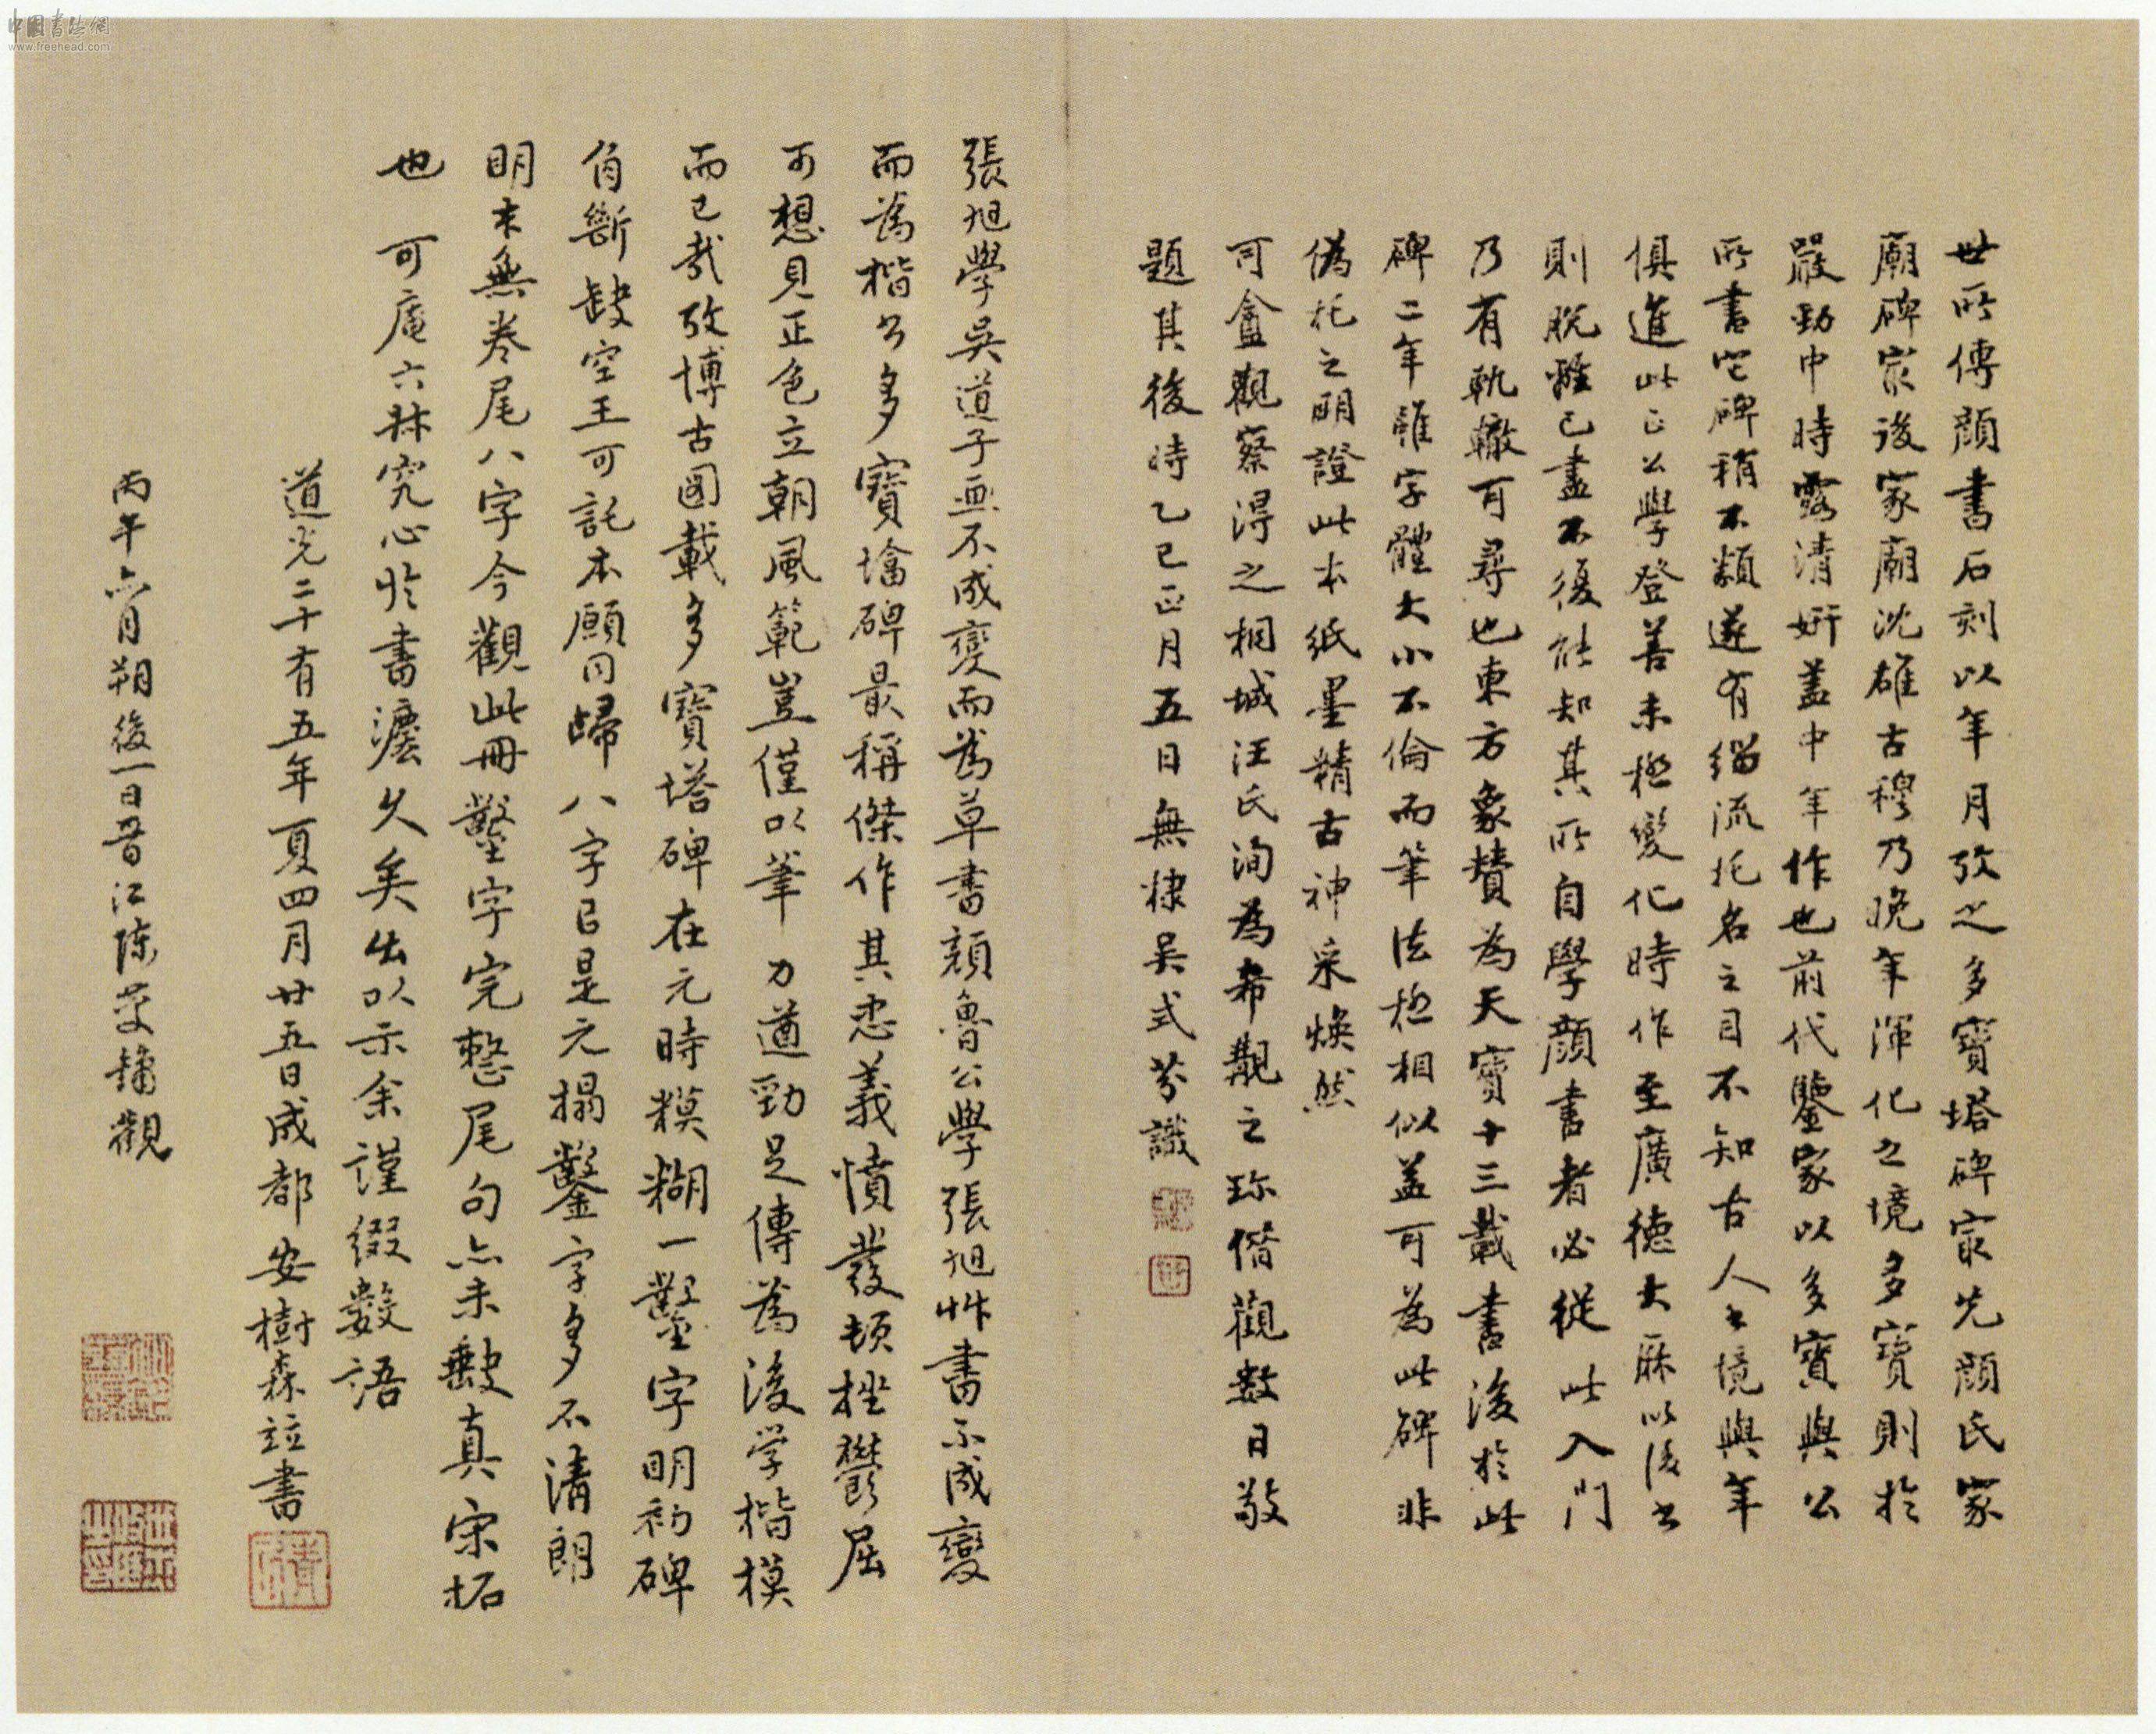 世所傳顏書石刻以年月攷之多寶塔碑宷先顏氏家
廟碑宷後家廟沈雄古穆乃晚年渾化之境多寶則於
嚴勁中時露清妍蓋中年作也前代鑒家以多寶與公
所書它碑稍不類遂有緇流托名之目不知古人書境與年
俱進此正公學登善未極變化時作至廣德大厤以後書
則脫離已盡不復能知其所自學顏書者必從此入門
乃有軌轍可尋也東方象贊為天寶十三載書後於此
碑二年雖字體大小不倫而筆法極相似蓋可為此碑非
偽托之明證此本紙墨精古神采煥然
可盦觀察得之桐城汪氏洵為希覯之珍借觀數日敬
題其後時乙巳正月五日無棣吳式芬識
張旭學吳道子畫不成變而為草書顏魯公學張旭艸書不成變
而為楷公多寶墖碑最稱傑作其忠義憤發頓挫鬱屈
可想見正色立朝風範豈僅以筆力遒勁足傳為後学楷模
而已哉攷博古圖載多寶塔碑在元時糢糊一鑿字明初碑
角斷缺空王可託本願同歸八字已是元搨鑿字多不清朗
明末無卷尾八字今觀此冊鑿字完整尾句亦未缺真宋拓
也 可庵六棣究心於書灋久矣出以示余謹綴數語
道光二十有五年夏四月廿五日成都安樹森竝書
丙午六月朔後一日晉江陳慶鏞觀